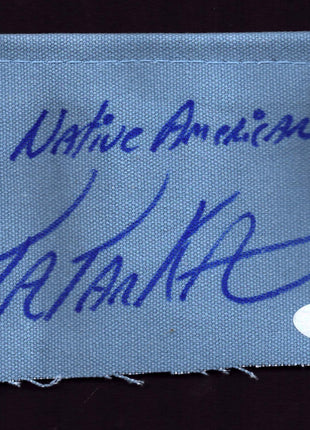 Native American
TATANKA